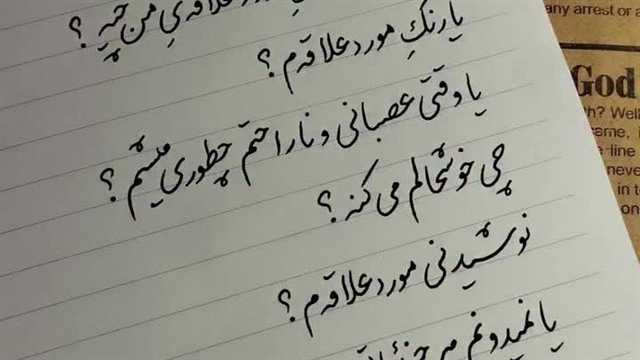 علاقه‌ي من چیه ؟
یا رنگِ مورد علاقه‌م ؟
یا وقتی عصبانی و ناراحتم چطوري میشم ؟
چی خوشحالم می کنه ؟
نوشیدنی مورد علاقه‌م ؟
یا نمیدونم
any arrest or a
God
h? Well
ame,
line
never
in t
on